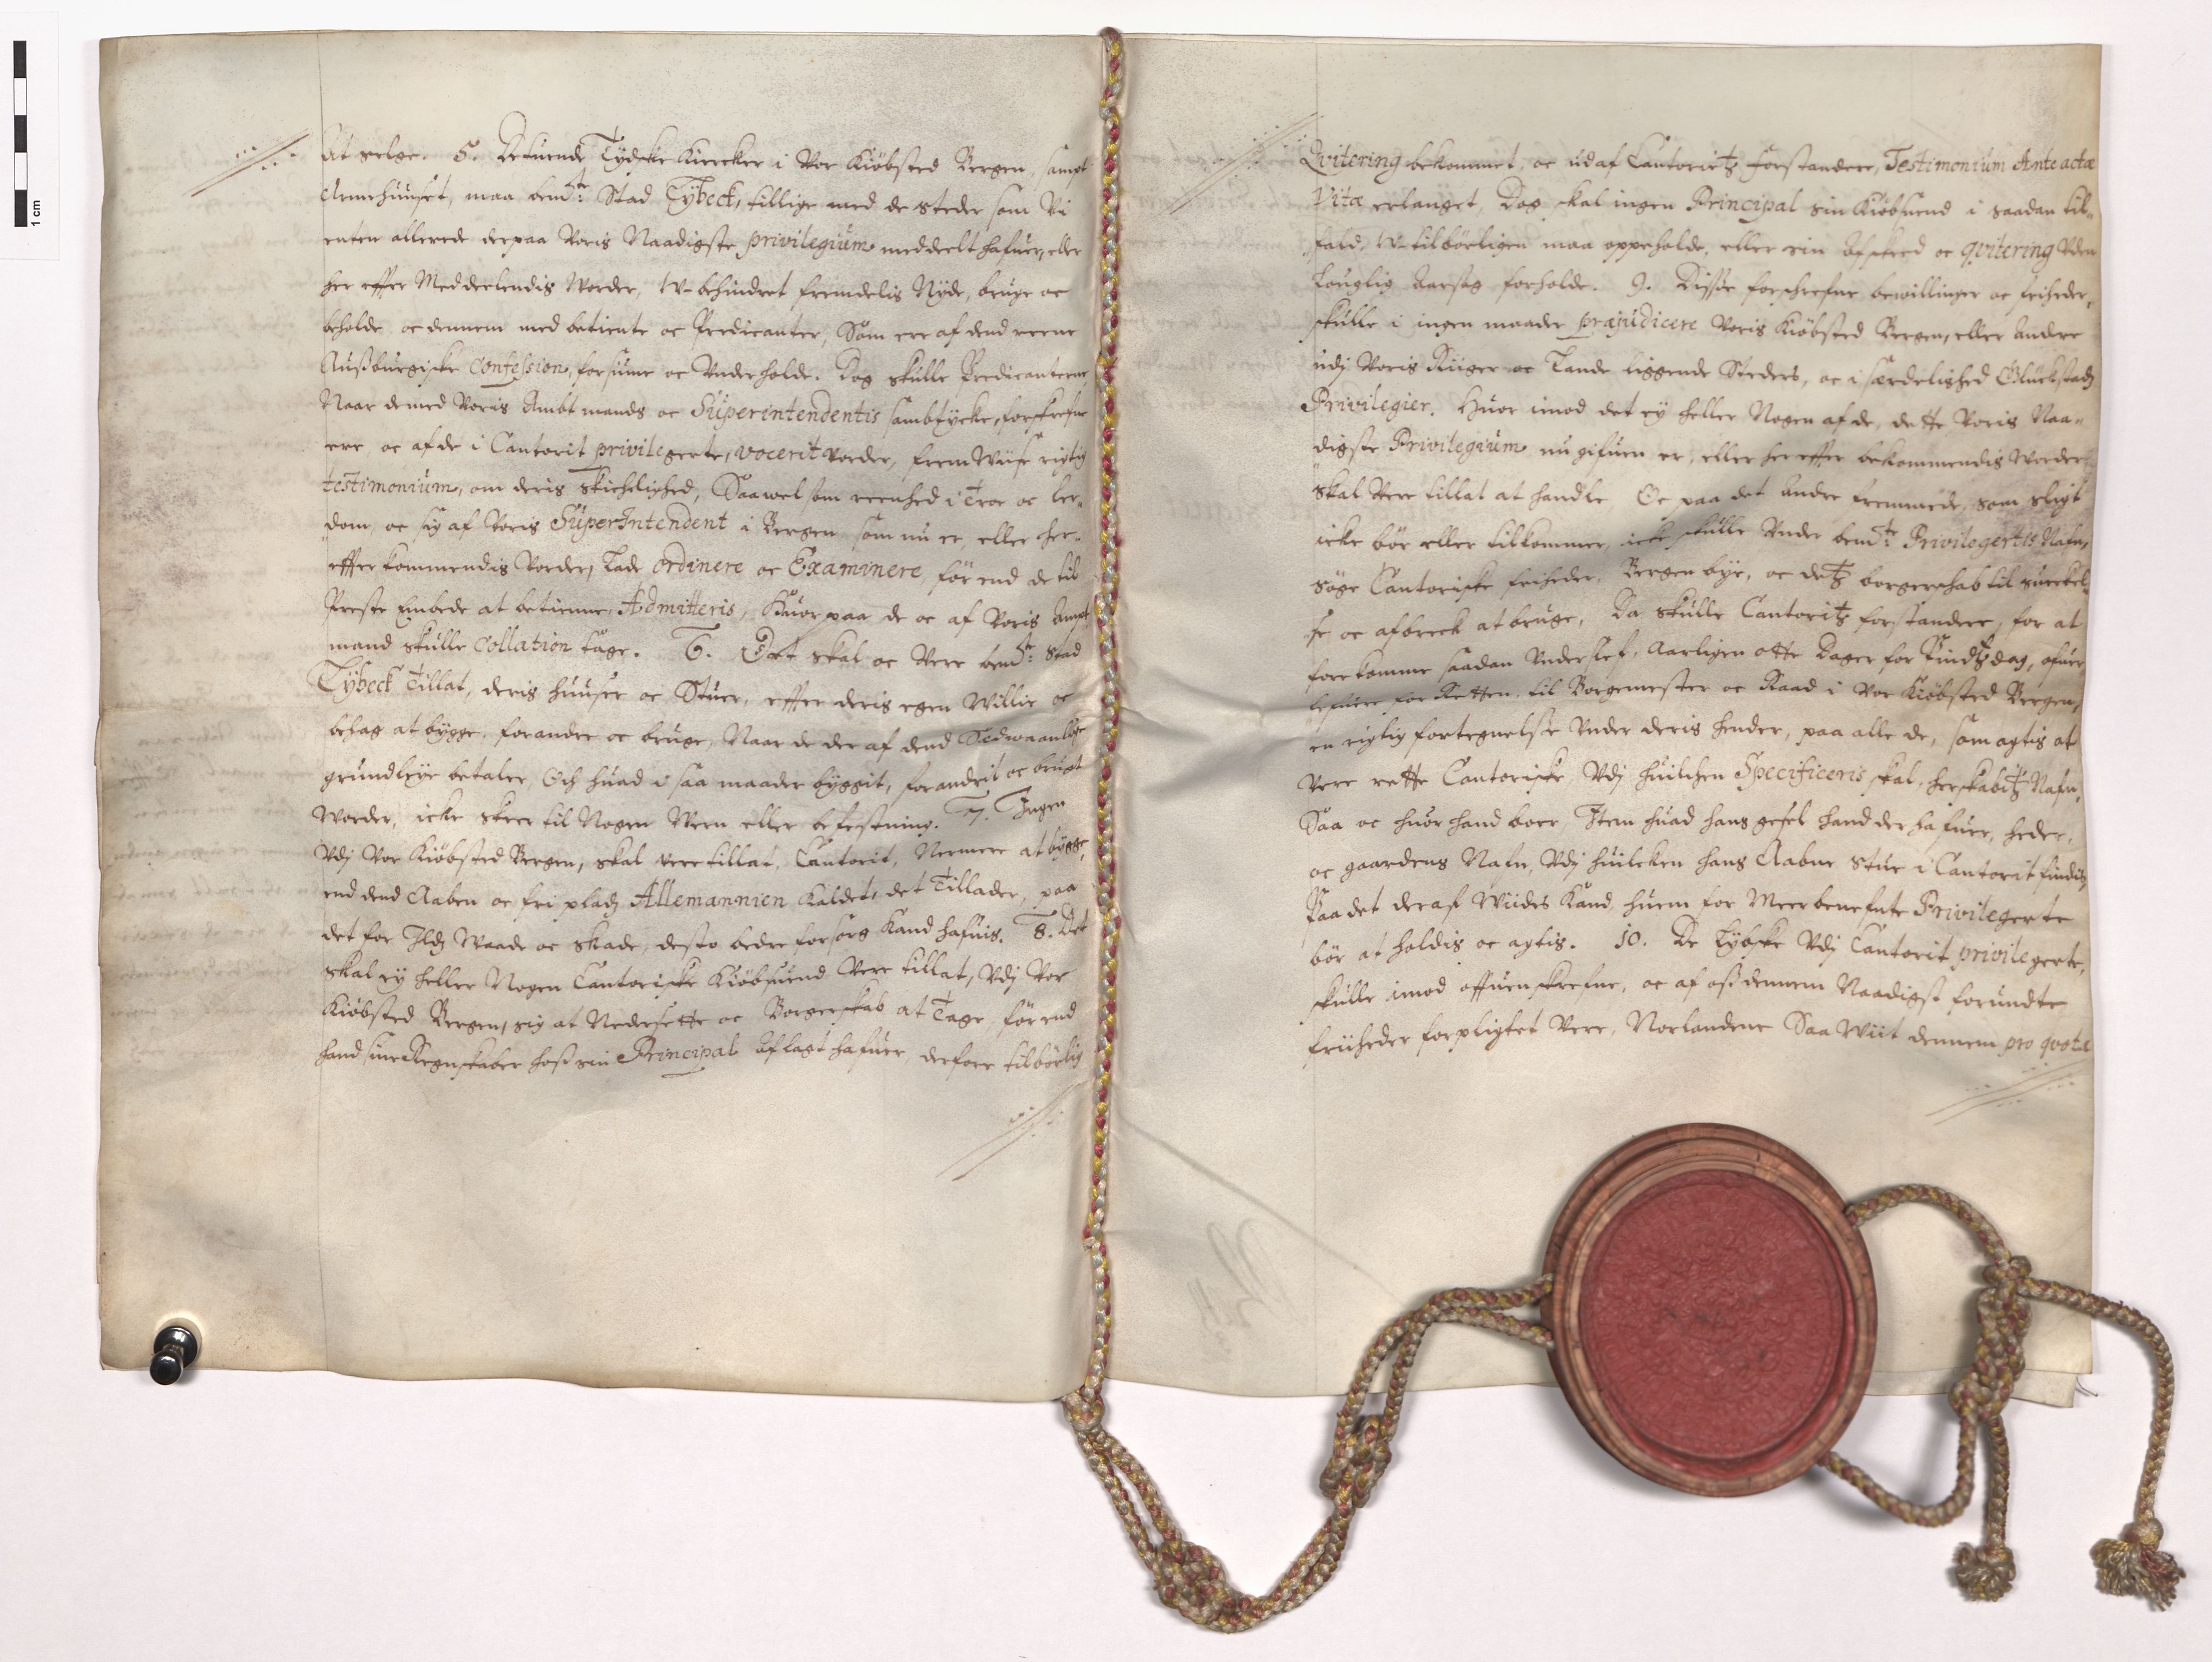 1 cm
At selge. 5. De tuende Tydske Kircker i Vor Kiöbsted Bergen, sampt
Armehuuset, maa bemte: Stad Lybeck, tillige med de steder som Vi
enten allerede derpaa Voris Naadigste privilegium meddeelt hafuer, eller
her effter Meddeelendis Worder, W-behindret fremdelis Nyde, bruge oc
beholde, oc dennem med betiente oc Predicanter, Som ere af dend reene
Ausburgiske Confession, forsiune oc Vnderholde. Dog skulle Predicanterne,
Naar de med Voris Ambtmands oc Superintendentis sambtycke, forskrefne
ere, oc af de i Cantorit privilegerte, vocerit vorder, frem Wiise rigtig
testimonium, om deris Skickelighed, Saawel som reenhed i Troe oc ler-
dom, oc sig af Voris SuperIntendent i Bergen, som nu er, eller her-
effter kommendis Vorder, Lade ordinere oc Examinere, för end de til
Preste Embede at betienne, Admitteris, Huorpaa de oc af Voris Ampt
mand skulle Collation tage. 6. Det skal oc Vere bemte: Stad
Lybeck Tillat, deris huuser oc Stuer, effter deris egen Willie oc
behag at bygge, forandre oc bruge, Naar de der af dend Sedwaanlige
grundleye betaler, Och huad i saa maader byggit, forandrit oc brugt
Worder, icke skeer til Nogen Wern eller befestning. 7. Ingen
Vdj Vor Kiöbsted Bergen, skal vere tillat, Cantorit, Nermere at bygge,
end dend Aaben oc fri pladz Allemannien Kaldet, det Tillader, paa
det for Ildz Waade oc skade, desto bedre forsorg Kand hafuis. 8. Det
skal ey heller Nogen Cantoriske Kiöbsuend Vere tillat, Vdj Vor
Kiöbsted Bergen, sig at Nedersette oc Borgerskab at Tage, för end
hand sine Regnskaber hoss sin Principal Aflagt hafuer, derfore tilbörlig
Qvitering bekommet, oc ud af Cantoritz forstandere, Testimonium Ante actæ
Vitæ erlanget, Dog skal ingen Principal sin Kiöbsuend i saadan til-
fald, W-tilbörligen maa oppeholde, eller sin Afskeed oc qvitering Vden
Louglig Aarsag forholde. 9. Disse forschrefne bewillinger oc friheder,
skulle i ingen maader præjudicere Voris Kiöbsted Bergen, eller Andre
udj Voris Riiger oc Lande liggende Steders, oc i særdelished Glückstadz
Privilegier. Huor imod det ey heller Nogen af de, dette Voris Naa-
digste Privilegium nu gifuen er, eller her effter bekommendis Worder
skal Vere tillat at handle. Oc paa det Andre fremmede, som sligt
icke bör eller tilkommer, icke skulle Vnder bemte: Privilegertis Nafn,
söge Cantoriske friheder, Bergen bye, oc detz borgerschab til
oc afbreck at bruge, Da skulle Cantoritz forstandere, for at
forekomme saadan Vnderslef, Aarligen otte Dager for Pindtzdag, ofuer-
lefuere for Retten, til Borgemester oc Raad i Vor Kiöbsted Bergen,
en rigtig fortegnelse Vnder deris hender, paa alle de, som agtis at
Vere rette Cantoriske, Vdj huilchen Specificeris skal, herskabitz Nafn,
Saa oc huor hand boer, Item huad hans gesel hand der hafuer, heder,
oc gaardens Nafn, Vdj huilcken hans Aabne stue i Cantorit findis,
Paa det deraf Wiides Kand, huem for Meerbenefnte Privilegerte
bör at holdis oc agtis. 10. De Lybske Vdj Cantorit privilegerte,
skulle imod offuenskrefne, oc af oss dennem Naadigst forundte
friiheder forpligtet Vere, Norlandene Saa Wiit dennem pro qvota